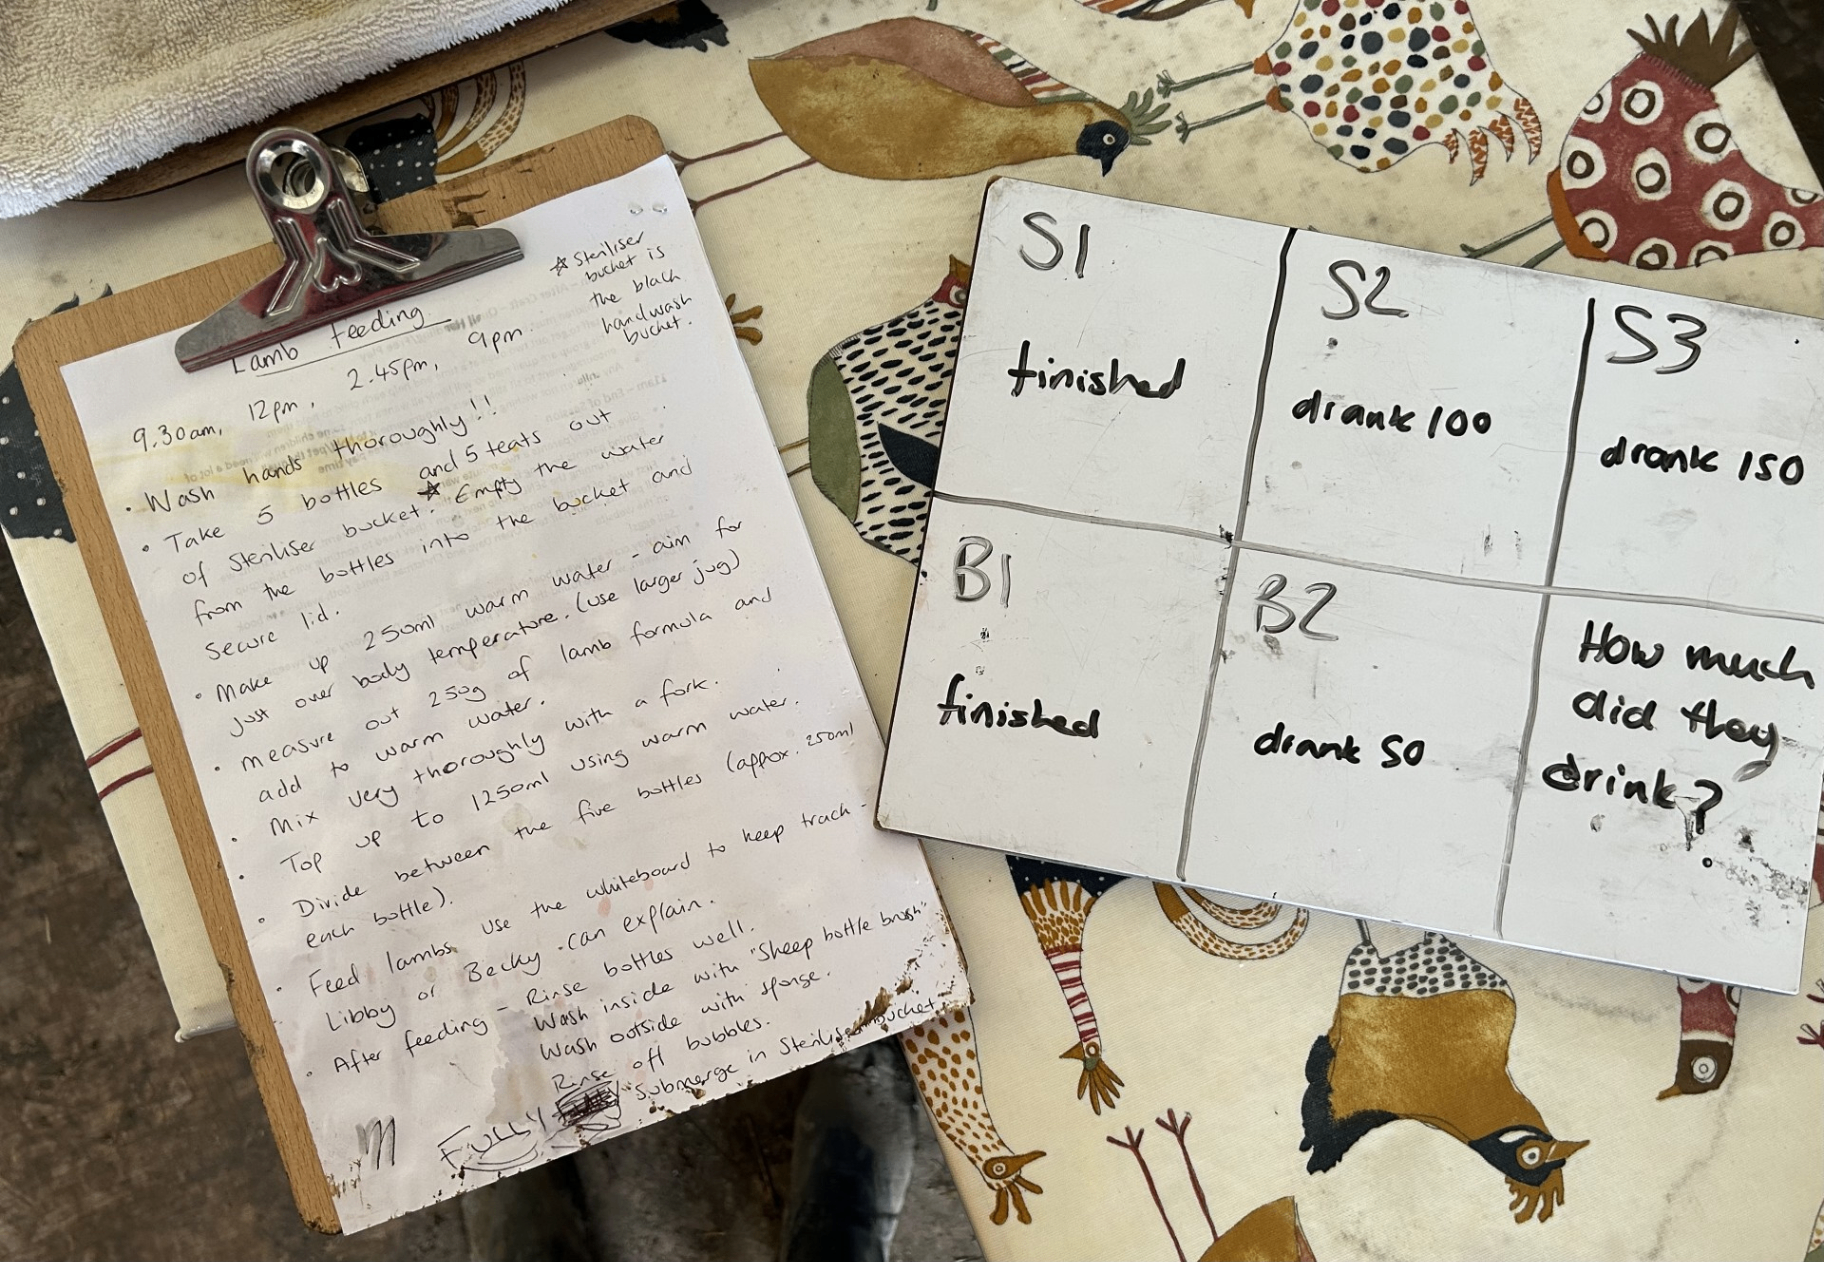 Lamb feeding
9.30am, 12pm, 2.45pm, 9pm
☆ Steriliser
bucket is
the black
handwash
bucket.
• Wash hands thoroughly!!
• Take 5 bottles and 5 teats out
of steriliser bucket. ☆ Empty the water
from the bottles into the bucket and
secure lid.
• Make up 250ml warm water - aim for
just over body temperature. (use larger jug)
• measure out 250g of lamb formula and
add to warm water.
• Mix very thoroughly with a fork.
• Top up to 1250ml using warm water.
• Divide between the five bottles (approx. 250ml
each bottle).
• Feed lambs. Use the whiteboard to keep track -
Libby or Becky can explain.
• After feeding - Rinse bottles well.
Wash inside with "Sheep bottle brush"
Wash outside with sponge.
Rinse off bubbles.
FULLY submerge in Steriliser bucket
m
S1
finished
S2
drank 100
S3
drank 150
B1
finished
B2
drank 50
How much
did they
drink?